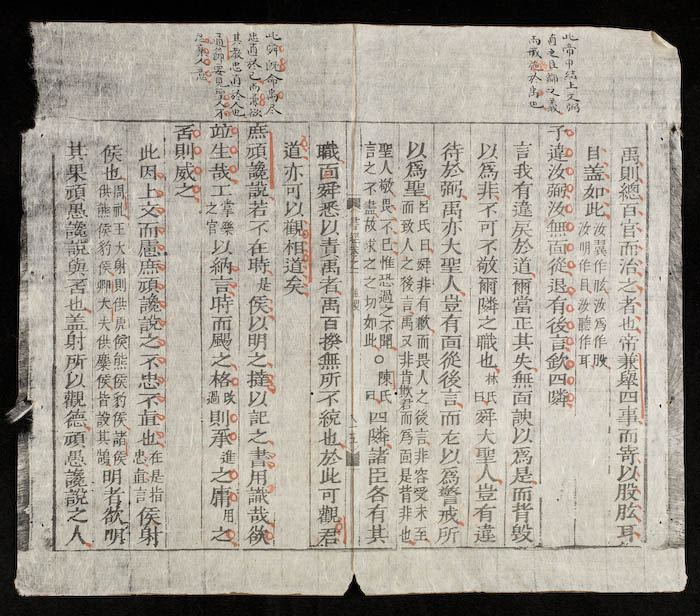 此帝申結上文弼
直之臣鄰之義
而戒飭於禹也
禹則總百官而治之者也帝兼舉四事而寄以股肱耳
目盖如此汝翼作肱汝為作股汝明作目汝聽作耳
子違汝弼汝無面從退有後言欽四隣
言我有違戾於道爾當正其失無面諛以爲是而背毀
以爲非不可不敬爾隣之職也林氏曰舜大聖人豈有違
待於弼禹亦大聖人豈有面從後言而在以爲警戒所
以爲聖吕氏曰舜非有歉而畏人之後言非容受未至而致人之後言禹又非肯欺君而爲面是背非也
聖人敬畏不已惟恐過之不聞言之不盡故求之之切如此○陳氏曰四隣諸臣各有其
書經卷之一
職面舜悉以責禹者禹百揆無所不統也於此可觀君
道亦可以觀相道矣
此舜既命禹尽
忠直於已而猶欲
其教忠直於人也
這節要見聖人不
忍棄人意
庶頑讒說若不在時是侯以明之撻以記之書用識哉欲
竝生哉工掌樂之官以納言時而颺之格改過則承進之庸用之
否則威之
此因上文而慮庶頑讒說之不忠不直也在是指忠直言侯射
侯也周礼王大射則供虎侯熊侯豹侯諸侯供熊侯豹侯卿大夫供麋侯皆設其鵠明者欲明
其果頑愚讒說與否也盖射所以觀德頑愚讒說之人